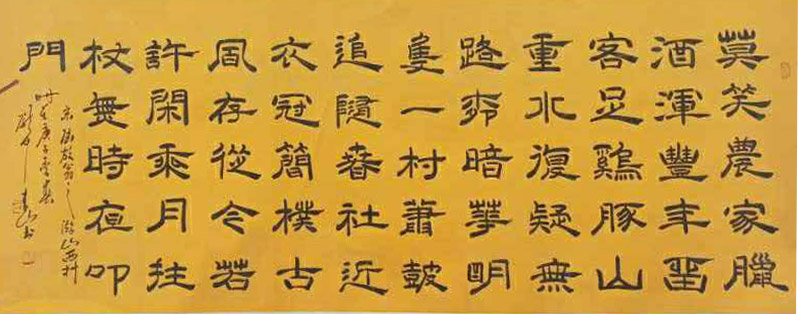 莫笑農家臘
酒渾豐年留
客足鷄豚山
重水復疑無
路柳暗華明
隻一村蕭皷
追隨春社近
衣冠簡樸古
風存從今若
許閑乘月拄
杖無時夜叩
門
宋陸放翁之游山西村
庚子春
書